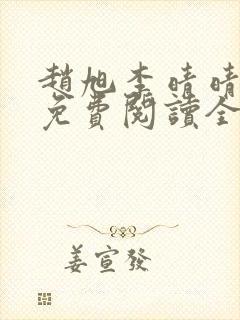 趙旭李晴晴
免費閱讀全
姜宣發